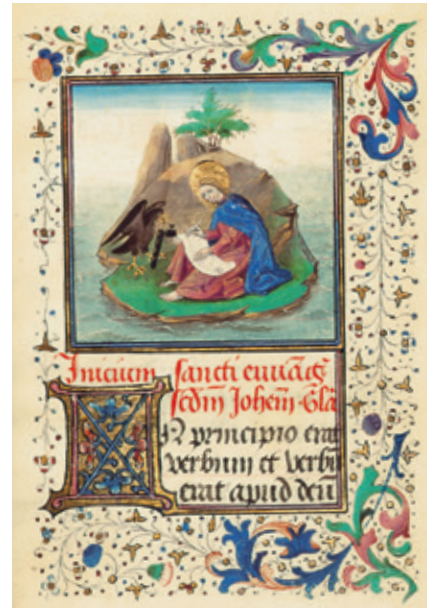 Inicium sancti euuāgͥ
scdm̄ Johem̄ · Gl̄a
IN principio erat
verbum et verbū
erat apud deū